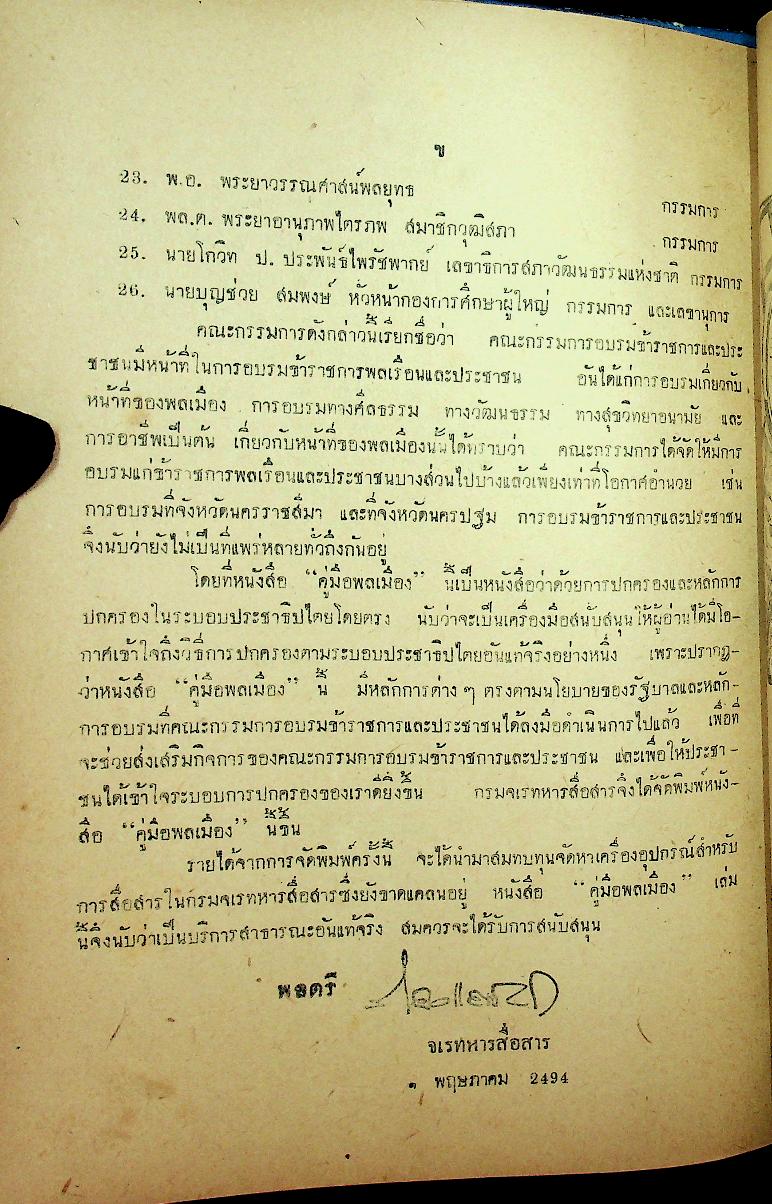 ข
23. พ.อ. พระยาวรรณศาสน์พลยุทธ กรรมการ
24. พล.ต. พระยาอานุภาพไตรภพ สมาชิกวุฒิสภา กรรมการ
25. นายโกวิท ป. ประพันธ์ไพรัชพากย์ เลขาธิการสภาวัฒนธรรมแห่งชาติ กรรมการ
26. นายบุญช่วย สมพงษ์ หัวหน้ากองการศึกษาผู้ใหญ่ กรรมการ และเลขานุการ
คณะกรรมการดังกล่าวนี้เรียกชื่อว่า คณะกรรมการอบรมข้าราชการและประ
ชาชนมีหน้าที่ในการอบรมข้าราชการพลเรือนและประชาชน อันได้แก่การอบรมเกี่ยวกับ
หน้าที่ของพลเมือง การอบรมทางศีลธรรม ทางวัฒนธรรม ทางสุขวิทยาอนามัย และ
การอาชีพเป็นต้น เกี่ยวกับหน้าที่ของพลเมืองนั้นได้ทราบว่า คณะกรรมการได้จัดให้มีการ
อบรมแก่ข้าราชการพลเรือนและประชาชนบางส่วนไปบ้างแล้วเพียงเท่าที่โอกาศอำนวย เช่น
การอบรมที่จังหวัดนครราชสีมา และที่จังหวัดนครปฐม การอบรมข้าราชการและประชาชน
จึงนับว่ายังไม่เป็นที่แพร่หลายทั่วถึงกันอยู่
โดยที่หนังสือ "คู่มือพลเมือง" นี้เป็นหนังสือว่าด้วยการปกครองและหลักการ
ปกครองในระบอบประชาธิปไตยโดยตรง นับว่าจะเป็นเครื่องมือสนับสนุนให้ผู้อ่านได้มีโอ-
กาศเข้าใจถึงวิธีการปกครองตามระบอบประชาธิปไตยอันแท้จริงอย่างหนึ่ง เพราะปรากฏ-
ว่าหนังสือ "คู่มือพลเมือง" นี้ มีหลักการต่าง ๆ ตรงตามนโยบายของรัฐบาลและหลัก-
การอบรมที่คณะกรรมการอบรมข้าราชการและประชาชนได้ลงมือดำเนินการไปแล้ว เพื่อที่
จะช่วยส่งเสริมกิจการของคณะกรรมการอบรมข้าราชการและประชาชน และเพื่อให้ประชา-
ชนได้เข้าใจระบอบการปกครองของเราดียิ่งขึ้น กรมจเรทหารสื่อสารจึงได้จัดพิมพ์หนัง-
สือ "คู่มือพลเมือง" นี้ขึ้น
รายได้จากการจัดพิมพ์ครั้งนี้ จะได้นำมาสมทบทุนจัดหาเครื่องอุปกรณ์สำหรับ
การสื่อสารในกรมจเรทหารสื่อสารซึ่งยังขาดแคลนอยู่ หนังสือ "คู่มือพลเมือง" เล่ม
นี้จึงนับว่าเป็นบริการสาธารณะอันแท้จริง สมควรจะได้รับการสนับสนุน
พลตรี
จเรทหารสื่อสาร
๑ พฤษภาคม 2494